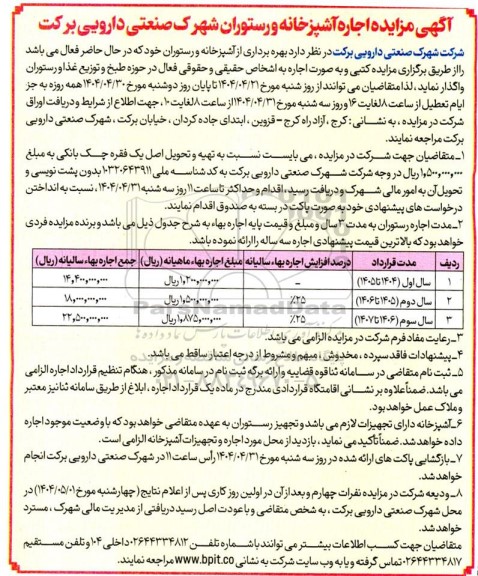 آگهی مزایده اجاره آشپزخانه و رستوران شهرک صنعتی دارویی برکت
شرکت شهرک صنعتی دارویی برکت در نظر دارد بهره برداری از آشپزخانه و رستوران خود که در حال حاضر فعال می باشد
را از طریق برگزاری مزایده کتبی و به صورت اجاره به اشخاص حقیقی و حقوقی فعال در حوزه طبخ و توزیع غذا و رستوران
واگذار نماید، لذا متقاضیان می توانند از روز شنبه مورخ ۱۴۰۴/۰۴/۲۱ تا پایان روز دوشنبه مورخ ۱۴۰۴/۰۴/۳۰ همه روزه به جز
ایام تعطیل از ساعت ۸ لغایت ۱۶ و روز سه شنبه مورخ ۱۴۰۴/۰۴/۳۱ از ساعت ۸ لغایت ۱۰، جهت اطلاع از شرایط و دریافت اوراق
شرکت در مزایده، به نشانی: کرج، آزاد راه کرج – قزوین، ابتدای جاده کردان، خیابان برکت، شهرک صنعتی دارویی
برکت مراجعه نمایند.
۱_ متقاضیان جهت شرکت در مزایده، می بایست نسبت به تهیه و تحویل اصل یک فقره چک بانکی به مبلغ
۱,۵۰۰,۰۰۰,۰۰۰ ریال در وجه شرکت شهرک صنعتی دارویی برکت به کد شناسه ملی ۱۰۳۲۰۶۴۳۹۱۱ بدون پشت نویسی و
تحویل آن به امور مالی شهرک و دریافت رسید، اقدام و حداکثر تا ساعت ۱۱ روز سه شنبه ۱۴۰۴/۰۴/۳۱، نسبت به انداختن
درخواست های پیشنهادی خود به صورت پاکت در بسته به صندوق اقدام نمایند.
۲_ مدت اجاره رستوران به مدت ۳ سال و مبلغ و قیمت پایه اجاره بهاء به شرح جدول ذیل می باشد و برنده مزایده فردی
خواهد بود که بالاترین قیمت پیشنهادی اجاره سه ساله را ارائه نموده باشد.
ردیف مدت قرارداد درصد افزایش اجاره بهاء سالیانه مبلغ اجاره بهاء ماهیانه (ریال) جمع اجاره بهاء سالیانه (ریال)
۱ سال اول (۱۴۰۴ تا ۱۴۰۵) – ۱,۲۰۰,۰۰۰,۰۰۰ ۱۴,۴۰۰,۰۰۰,۰۰۰
۲ سال دوم (۱۴۰۵ تا ۱۴۰۶) ۲۵٪ ۱,۵۰۰,۰۰۰,۰۰۰ ۱۸,۰۰۰,۰۰۰,۰۰۰
۳ سال سوم (۱۴۰۶ تا ۱۴۰۷) ۲۵٪ ۱,۸۷۵,۰۰۰,۰۰۰ ۲۲,۵۰۰,۰۰۰,۰۰۰
۳_ رعایت مفاد فرم شرکت در مزایده الزامی می باشد.
۴_ پیشنهادات فاقد سپرده، مخدوش، مبهم و مشروط از درجه اعتبار ساقط می باشد.
۵_ ثبت نام متقاضی در سامانه ثنا قوه قضاییه و ارائه برگه ثبت نام در سامانه مذکور، هنگام تنظیم قرارداد اجاره الزامی
می باشد. ضمناً علاوه بر نشانی اقامتگاه قراردادی مندرج در ماده یک قرارداد اجاره، ابلاغ از طریق سامانه ثنا نیز معتبر
و ملاک عمل خواهد بود.
۶_ آشپزخانه دارای تجهیزات لازم می باشد و تجهیز رستوران به عهده متقاضی خواهد بود که با وضعیت موجود اجاره
داده خواهد شد. ضمناً تأکید می نماید، بازدید از محل مورد اجاره و تجهیزات آشپزخانه الزامی است.
۷_ بازگشایی پاکت های ارائه شده در روز سه شنبه مورخ ۱۴۰۴/۰۴/۳۱ رأس ساعت ۱۱ در شهرک صنعتی دارویی برکت انجام
خواهد شد.
۸_ ودیعه شرکت در مزایده نفرات چهارم و بعد از آن در اولین روز کاری پس از اعلام نتایج (چهارشنبه مورخ ۱۴۰۴/۰۵/۰۱) در
محل شهرک صنعتی دارویی برکت، به شخص متقاضی و با عودت اصل رسید دریافتی از مدیریت مالی شهرک، مسترد
خواهد شد.
متقاضیان جهت کسب اطلاعات بیشتر می توانند با شماره تلفن ۰۲۶۴۴۳۳۴۸۱۲ داخلی ۱۰۴ و تلفن مستقیم
۰۲۶۴۴۳۳۴۸۱۷ تماس گرفته و یا به وب سایت شرکت به نشانی www.bpit.co مراجعه نمایند.